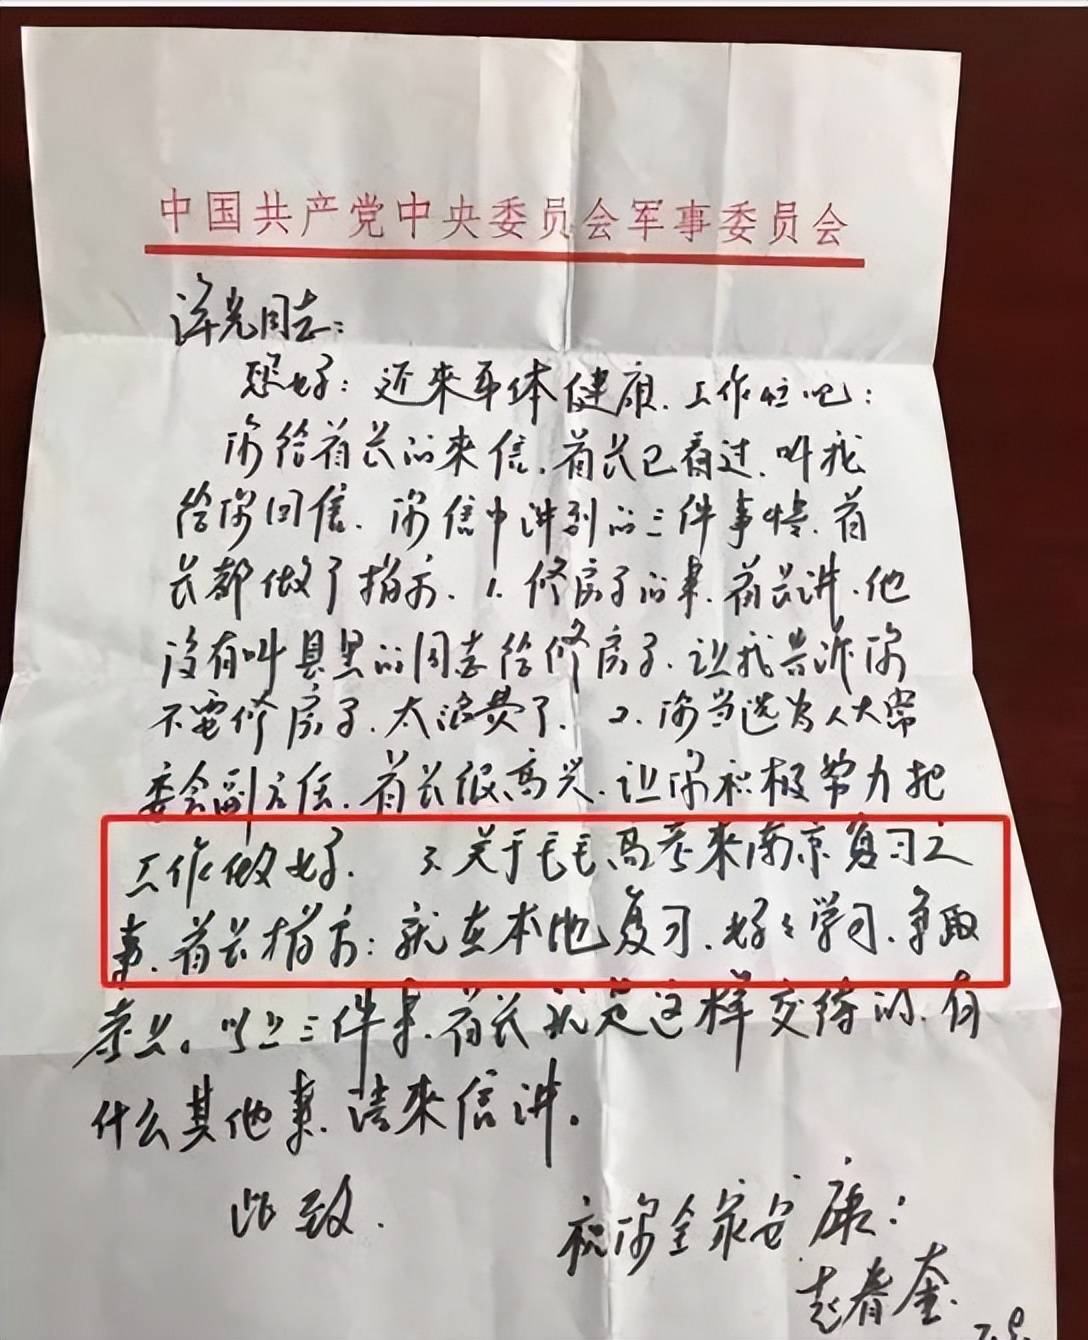 中国共产党中央委员会军事委员会
泽光同志：
您好：近来身体健康.工作忙吧：
你给首长的来信.首长已看过.叫我
给你回信.你信中讲到的三件事情.首
长都做了指示.1.修房子的事.首长讲.他
没有叫县里的同志给修房子.让我告诉你
不要修房子.太浪费了.2.你当选为人大常
委会副主任.首长很高兴.让你积极努力把
工作做好.3.关于毛毛高考来南京复习之
事.首长指示：就在本地复习.好々学习.争取
考上。以上三件事.首长就是这样交待的.有
什么其他事.请来信讲。
此致.
祝你全家安康：
赵春奎.